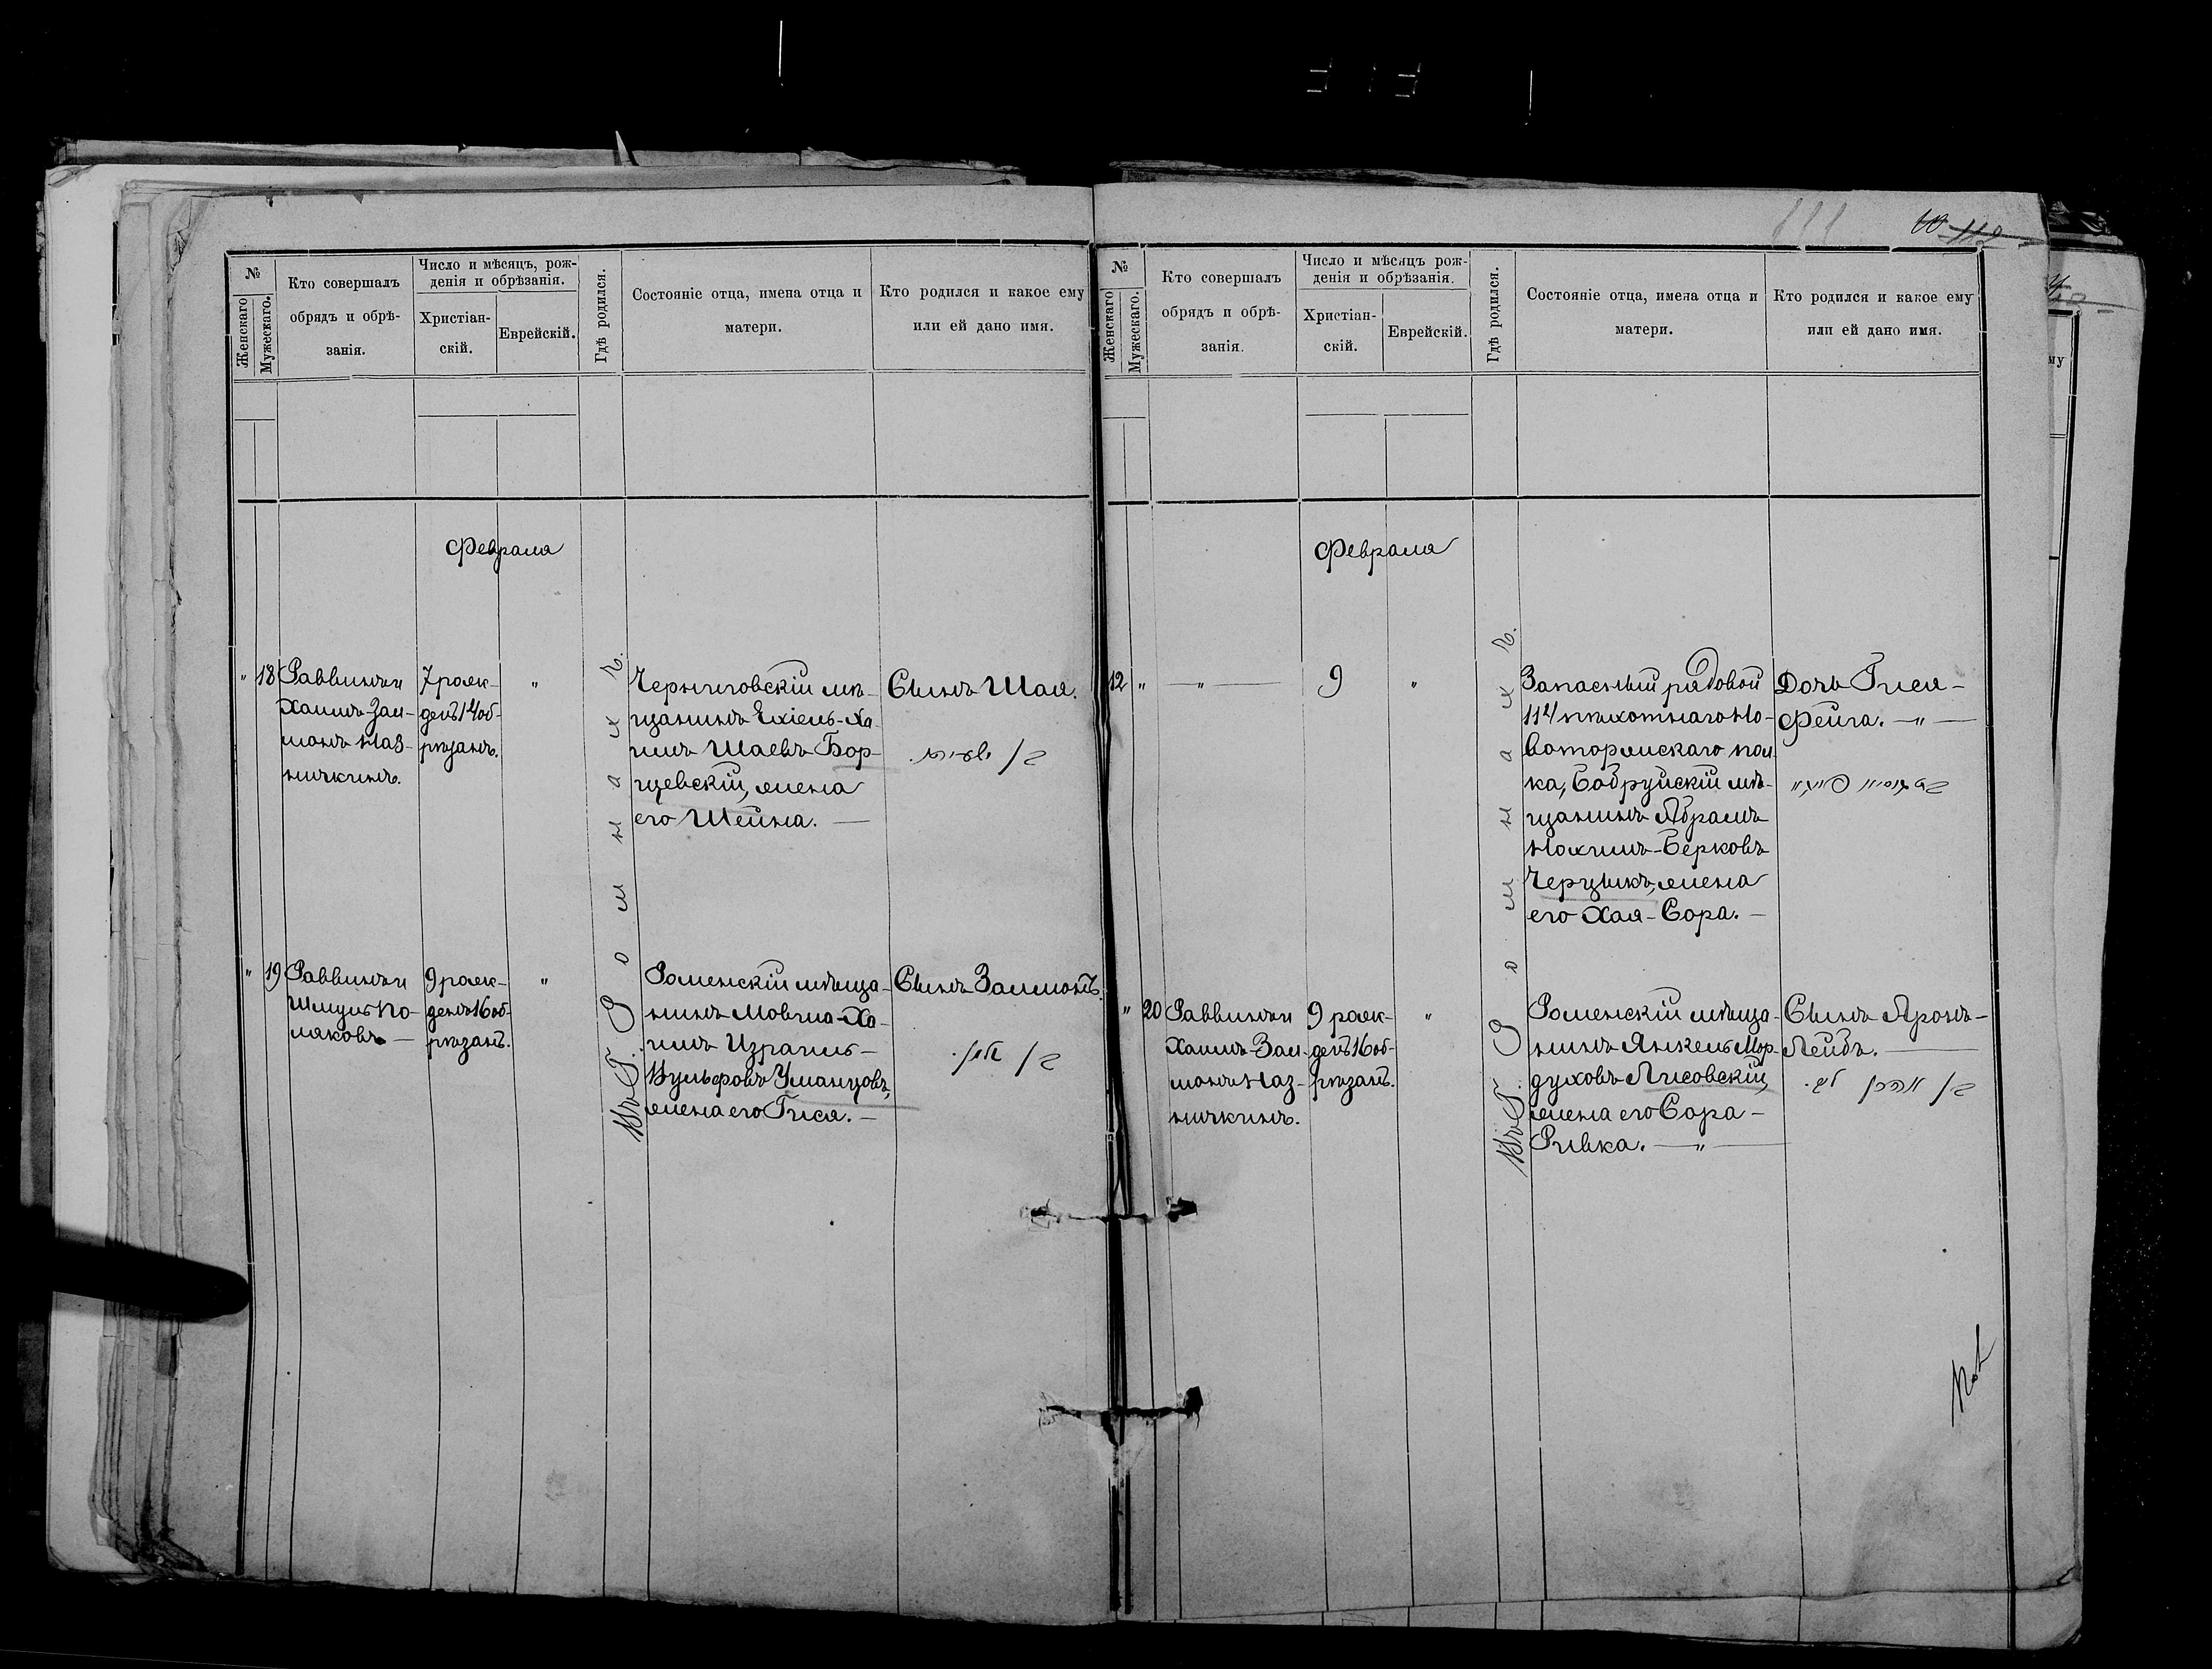 111
112
№
Женскаго
Мужескаго.
Кто совершалъ
обрядъ и обрѣ-
занія.
Число и мѣсяцъ, рож-
денія и обрѣзанія.
Христіан-
скій.
Еврейскій.
Гдѣ родился.
Состояніе отца, имена отца и
матери.
Кто родился и какое ему
или ей дано имя.
Февраля
" 18
Раввинъ и
Хаимъ-Зал-
монъ Наз-
ничкинъ.
7 рож-
денъ 14 об-
рѣзанъ.
"
Въ Г. Ромнахъ.
Черниговскій мѣ-
щанинъ Ехіель-Ха-
имъ Шаевъ Бор-
щевскій, жена
его Шейна. —
Сынъ Шая.
" 19
Раввинъ и
Шмуль По-
ляковъ. —
9 рож-
денъ 16 об-
рѣзанъ.
"
Роменскій мѣща-
нинъ Мовша-Ха-
имъ Израиль-
Вульфовъ Уманцовъ,
жена его Гися. —
Сынъ Залмонъ.
בן זלמן.
№
Женскаго
Мужескаго.
Кто совершалъ
обрядъ и обрѣ-
занія.
Число и мѣсяцъ рож-
денія и обрѣзанія.
Христіан-
скій.
Еврейскій.
Гдѣ родился.
Состояніе отца, имена отца и
матери.
Кто родился и какое ему
или ей дано имя.
Февраля
12 "
— " —
9
"
Въ Г. Ромнахъ.
Запасный рядовой
114 пѣхотнаго Но-
воторжскаго пол-
ка, Бобруйскій мѣ-
щанинъ Абрамъ
Нохимъ-Берковъ
Черцыкъ, жена
его Хая-Сора. —
Дочь Гися-
Фейга. — " —
" 20
Раввинъ и
Хаимъ-Зал-
монъ Наз-
ничкинъ.
9 рож-
денъ 16 об-
рѣзанъ.
"
Роменскій мѣща-
нинъ Янкель Мор-
духовъ Лисовскій,
жена его Сора-
Ривка. — " —
Сынъ Аронъ-
Лейбъ. —
בן אהרן ליב.